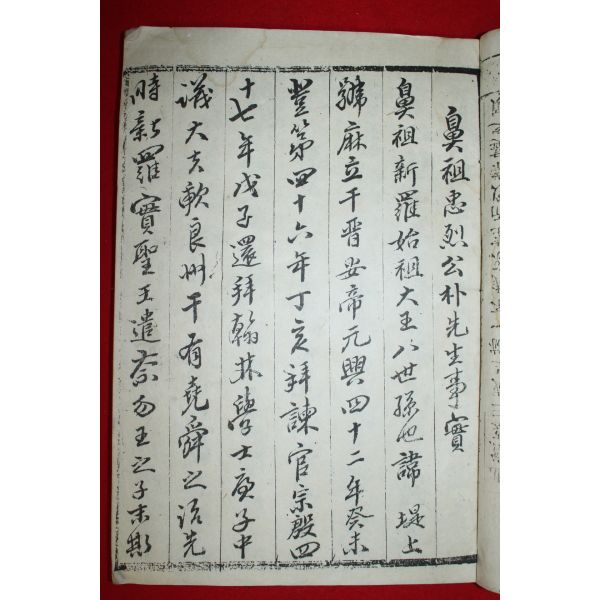 鼻祖忠烈公朴先生事實
鼻祖新羅始祖大王八世孫也諱堤上
號麻立干晋安帝元興四十二年癸未
登第四十六年丁亥拜諫官宗殷四
十七年戊子還拜翰林學士庚子中
議大夫歃良州干有堯舜之治先
時新羅實聖王遣奈勿王之子未斯